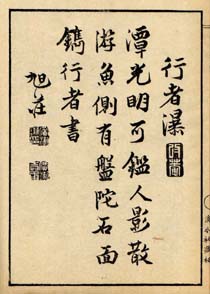 行者瀑
潭光明可鑑人影散
游魚側有盤陀石面
鐫行者書
旭莊